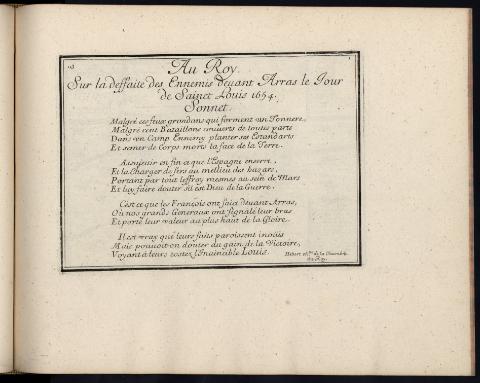 Au Roy.
Sur la deffaite des Ennemis deuant Arras le Jour
de Sainct Louis 1654.
Sonnet.
Malgré ces feux grondans qui forment un Tonnere,
Malgré cent Bataillons couuerts de toutes parts
Dans un Camp Ennemy planter ses Estandarts
Et semer de Corps morts la face de la Terre.
Assujettir en fin ce que l'Espagne enserre,
Et la Charger de fers au millieu des hazars,
Portant par tout l'effroy mesmes au sein de Mars
Et luy faire douter s'il est Dieu de la Guerre.
C'est ce que les François ont faict deuant Arras,
Où nos grands Generaux ont signalé leur bras
Et porté leur valeur au plus haut de la Gloire.
Il est vray que leurs faits paroissent inouïs
Mais pouuoit-on douter du gain de la Victoire,
Voyant à leurs testes l'Inuincible Louis.
Hebert de la Chambre
du Roy.